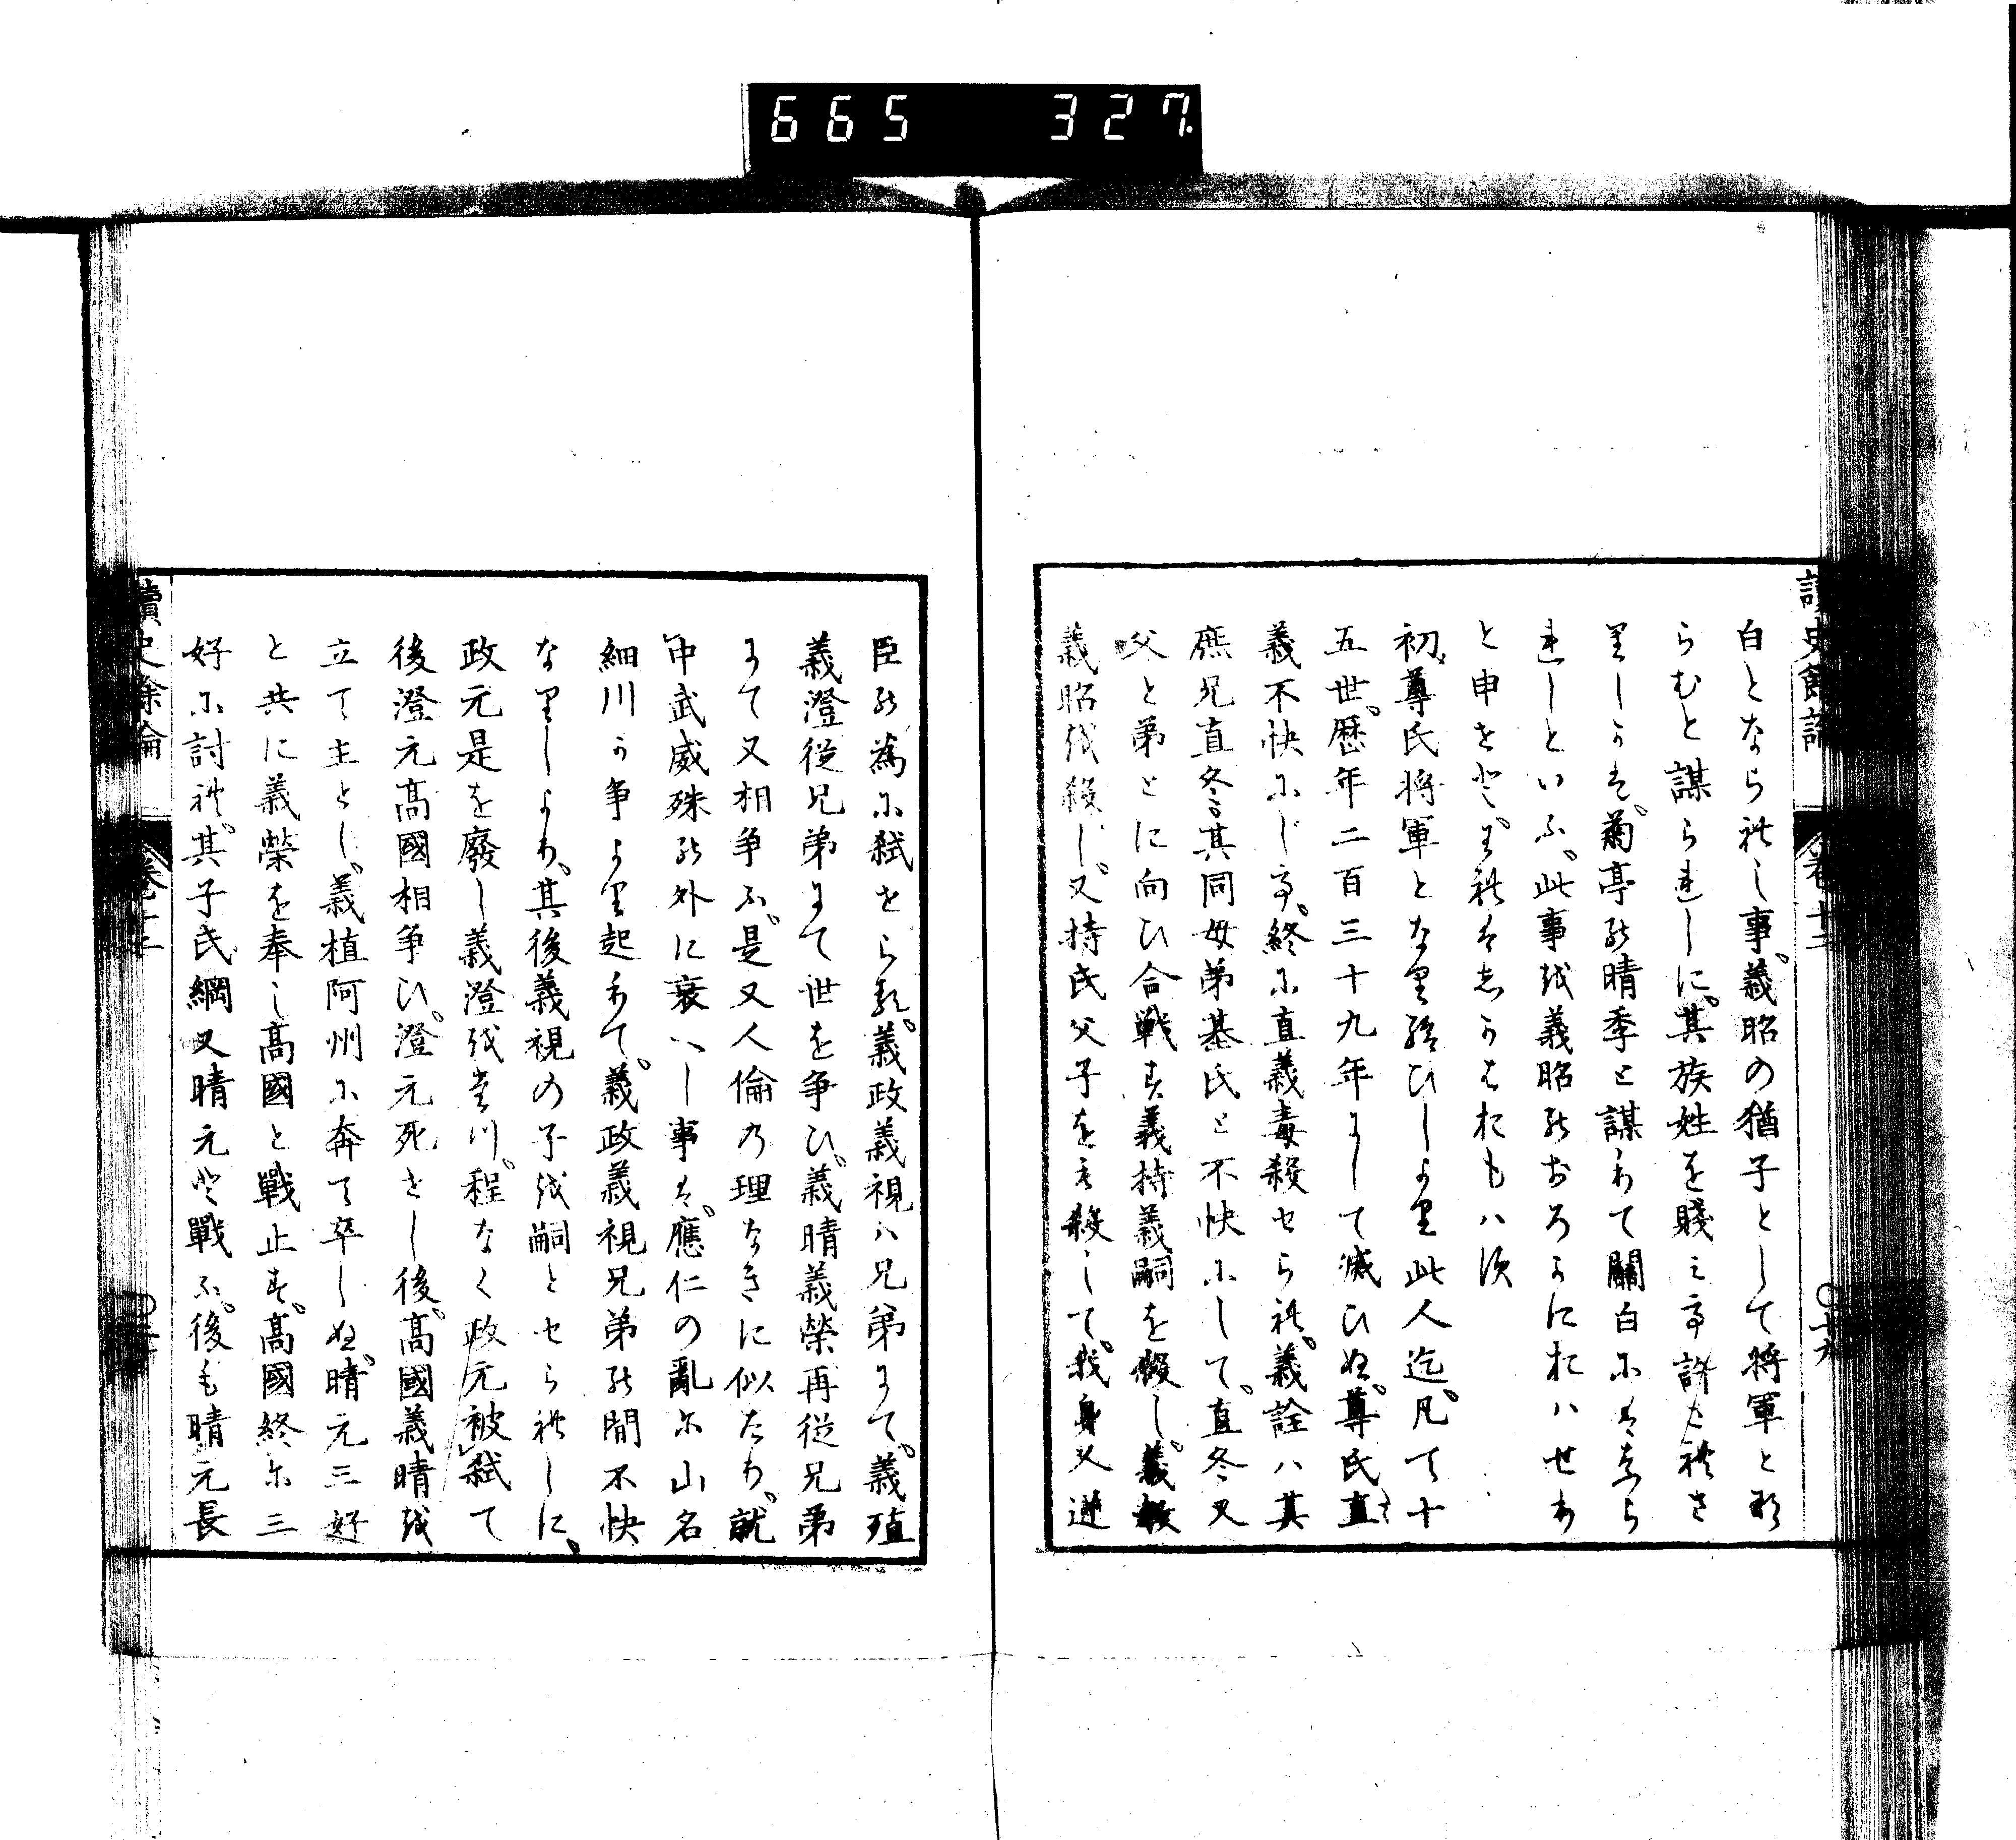 665 327.
讀史餘論 卷十二
白となられし事、義昭の猶子として將軍とな
らむと謀られしに、其族姓を賤みて許されさ
りしかは、菊亭の晴季と謀りて關白にはなら
れしといふ、此事を義昭のおろかにおハせり
と申せと、われはしかはおもハす
初、尊氏將軍となり給ひしより此人迄、凡て十
五世、歴年二百三十九年にして滅ひぬ、尊氏直
義不快にして、終に直義毒殺せられ、義詮ハ其
庶兄直冬、其同母弟基氏と不快にして、直冬又
父と弟とに向ひ合戰す義持義嗣を殺し、義教
義昭を殺し、又持氏父子を殺して、我身又逆
臣の為に弑せらる、義政義視ハ兄弟にて、義植
義澄從兄弟にて世を争ひ、義晴義榮再從兄弟
にて又相争ふ、是又人倫の理なきに似たり、就
中武威殊の外に衰へし事は、應仁の亂に山名
細川か争より起りて、義政義視兄弟の間不快
なりしより、其後義視の子を嗣とせられしに、
政元是を廢し義澄を立つ、程なく政元被弑て
後澄元高國相争ひ、澄元死せし後、高國義晴を
立て主とし、義植阿州に奔て卒しぬ、晴元三好
と共に義榮を奉し高國と戰止す、高國終に三
好に討れ、其子氏綱又晴元と戰ふ、後も晴元長
讀史餘論 卷十二